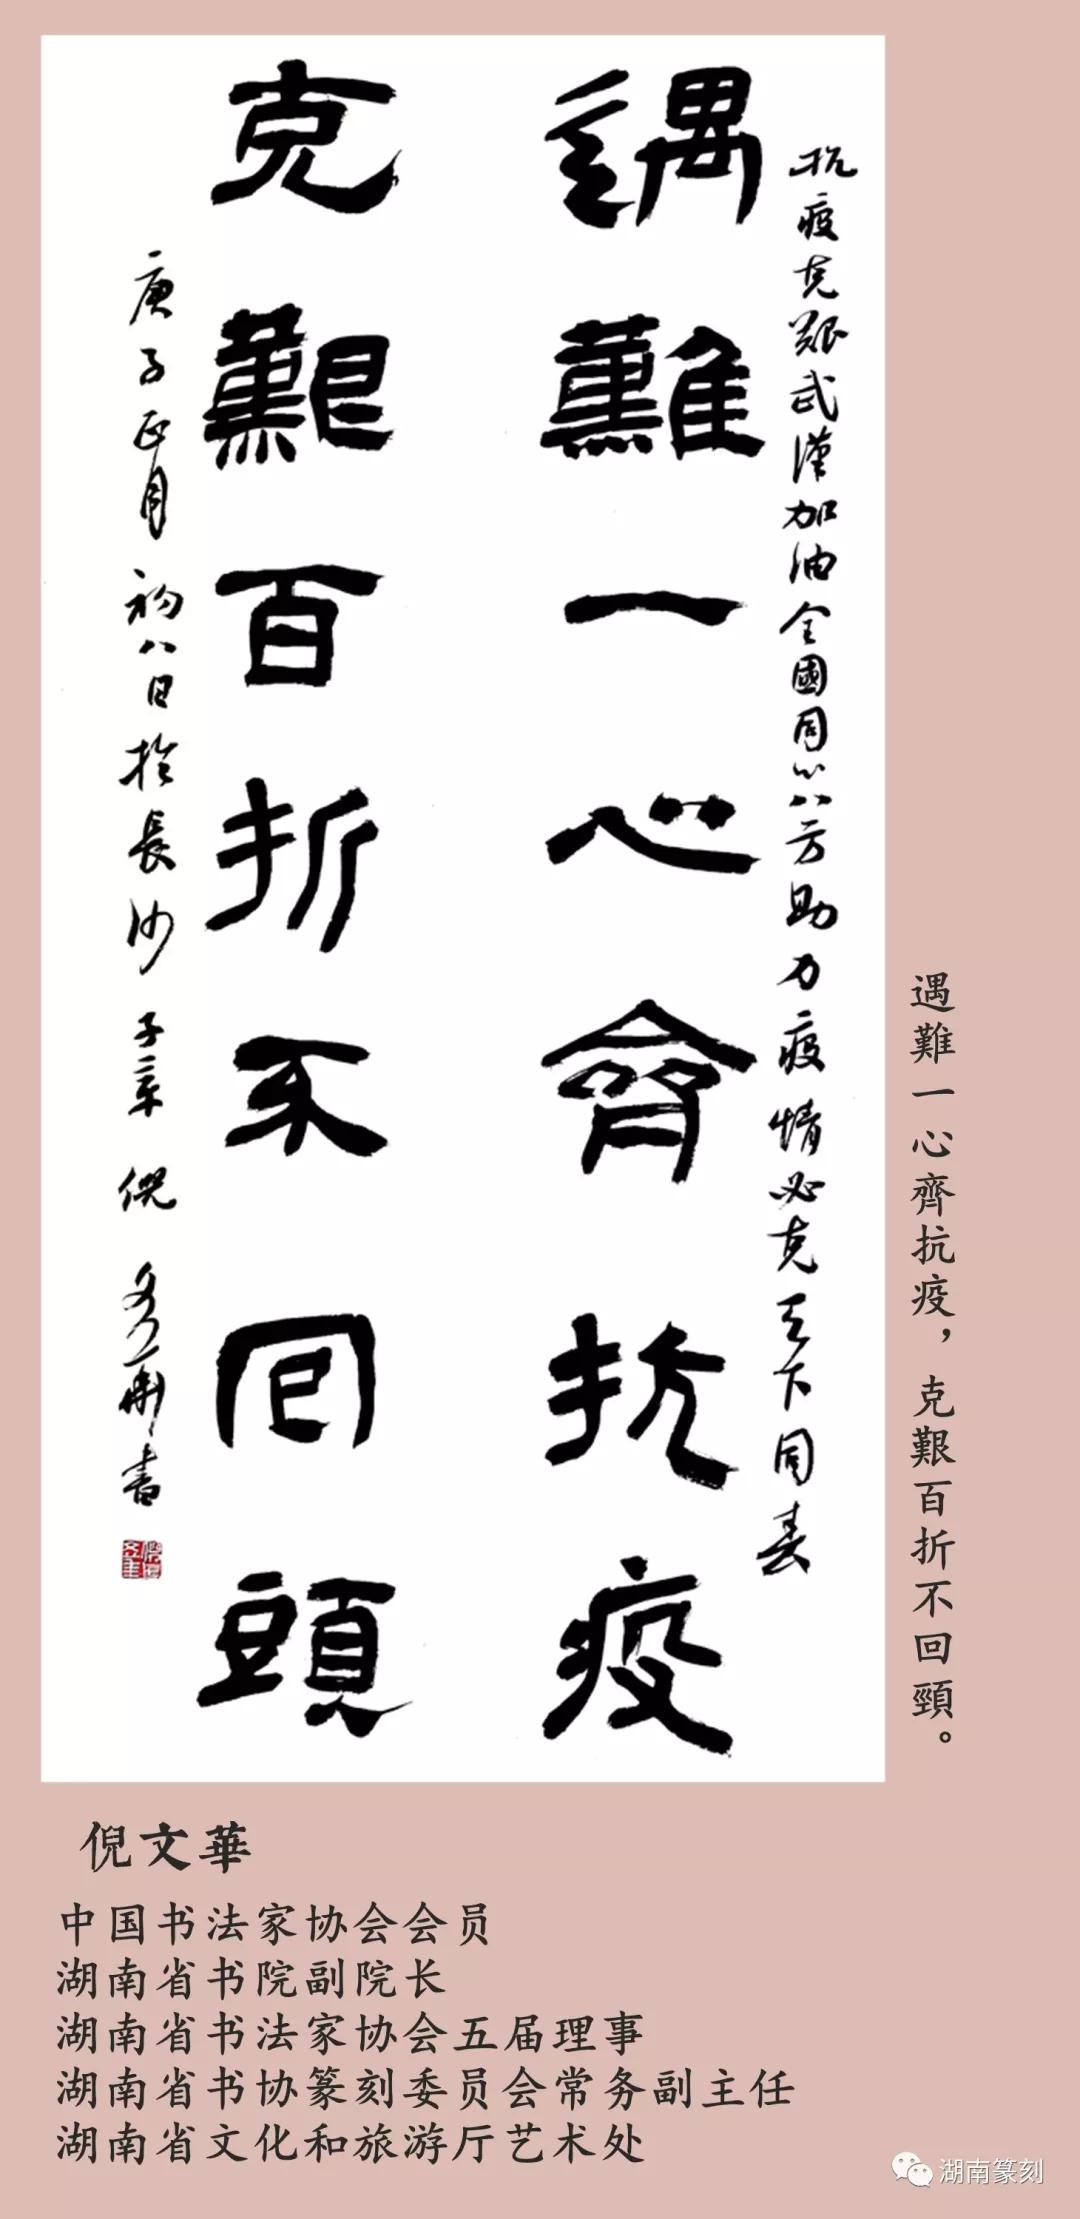 抗疫克艱武漢加油全國同心八方助力疫情必克天下同春
遇難一心齊抗疫
克艱百折不回頭
庚子正月初八日於長沙子倪文華書
遇難一心齊抗疫，克艱百折不回頸。
倪文華
中国书法家协会会员
湖南省书院副院长
湖南省书法家协会五届理事
湖南省书协篆刻委员会常务副主任
湖南省文化和旅游厅艺术处
湖南篆刻